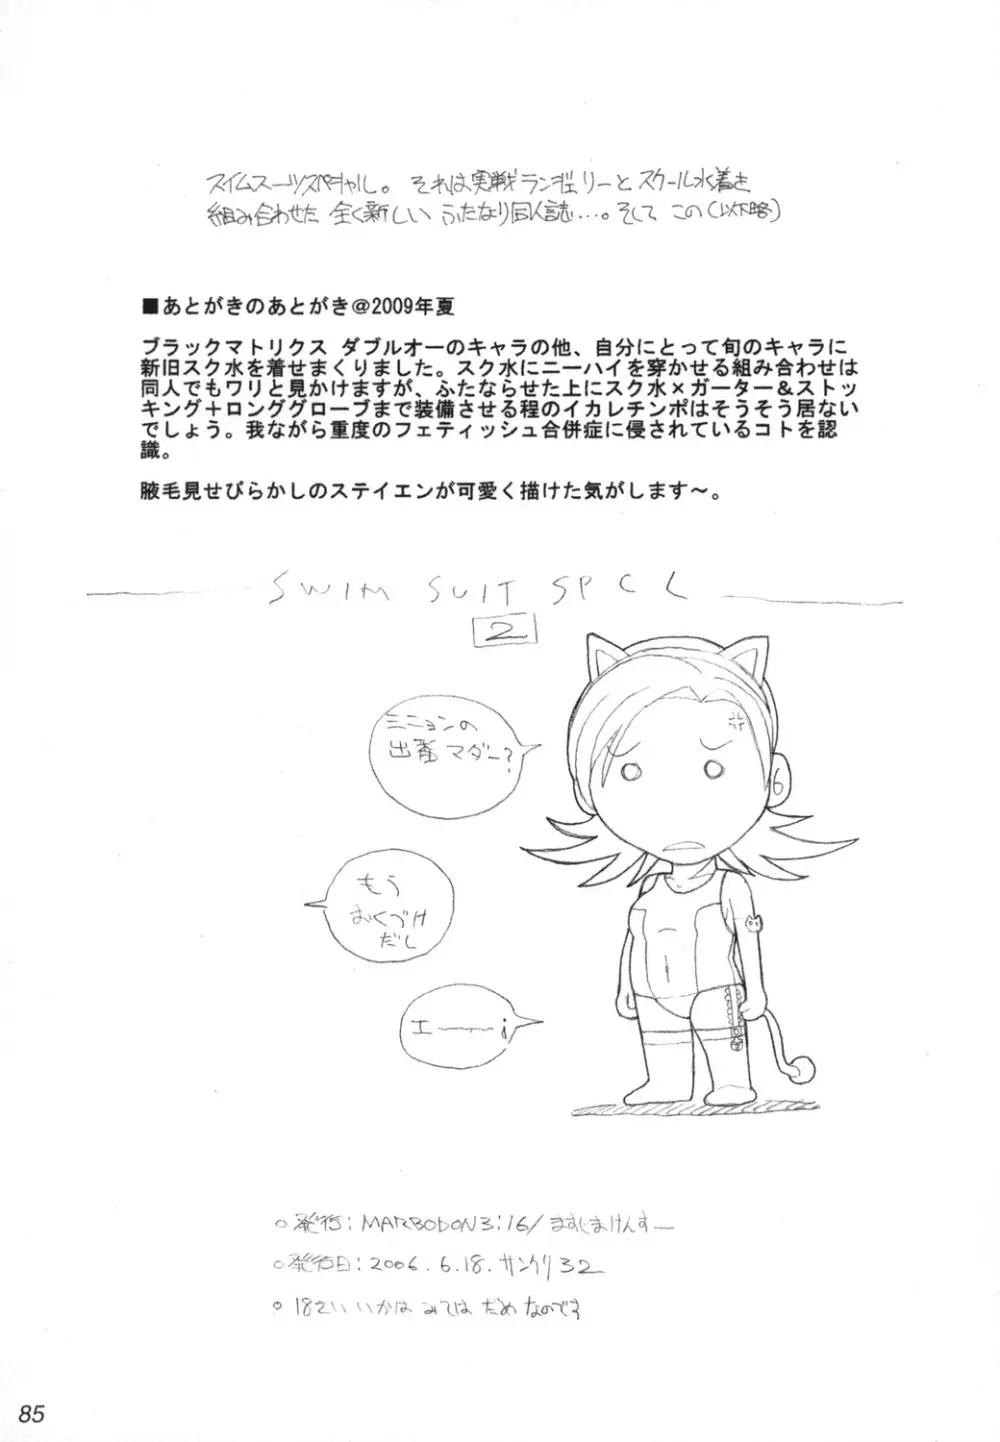 スイムスーツスペチャル。それは実戦ランジェリーとスクール水着を
組み合わせた全く新しいふたなり同人誌…。そしてこの(以下略)
■あとがきのあとがき@2009年夏
ブラックマトリクス ダブルオーのキャラの他、自分にとって旬のキャラに
新旧スク水を着せまくりました。スク水にニーハイを穿かせる組み合わせは
同人でもワリと見かけますが、ふたならせた上にスク水×ガーター&ストッ
キング+ロンググローブまで装備させる程のイカレチンポはそうそう居ない
でしょう。我ながら重度のフェティッシュ合併症に侵されているコトを認
識。
腋毛見せびらかしのステイエンが可愛く描けた気がします~。
SWIM SUIT SPCL
2
ミニョンの
出番マダー?
もう
おくづけ
だし
エー――¡
○発行:MARBODON3:16/ますじまけんすー
○発行日:2006.6.18.サンクリ32
○18さい いかは みては だめ なのです
85